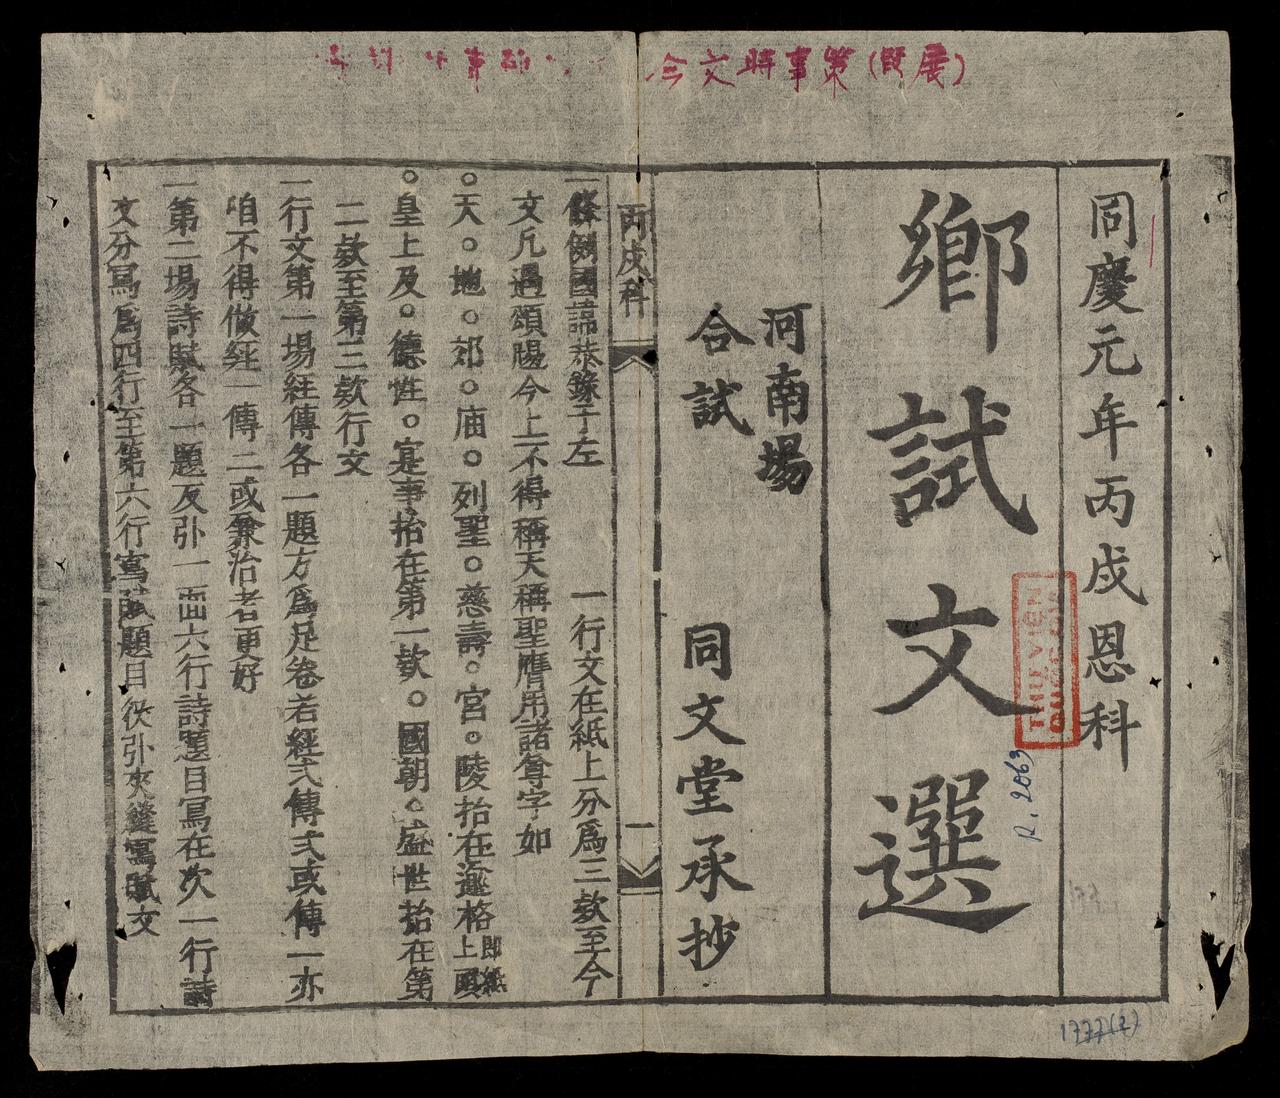 今文時事策(既展)
同慶元年丙戌恩科
鄉試文選
河南場
合試
同文堂承抄
THƯ VIỆN
R.2063
1777(2)
丙戌科
一
一條例國諱恭錄于左 一行文在紙上分爲三欵至今
文凡遇頌賜今上不得稱天稱聖應用諸尊字如
○天○地○郊○庙○列聖○慈壽○宮○陵抬在邊格上頭即紙
○皇上及○德性○寔事抬在第一欵○國朝○盛世抬在第
二欵至第三欵行文
一行文第一場経傳各一題方爲足卷若経弍傳弍或傳一亦
咱不得做経一傳二或兼治者更好
一第二場詩賦各一題及引一面六行詩題目寫在次一行詩
文分寫爲四行至第六行寫賦題目從引夾縫寫賦文